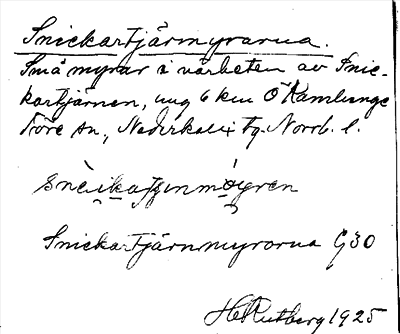 Snickartjärnmyrarna.
Små myrar i närheten av Snic-
kartjärnen, ung 6 km Ö Kamlunge
Töre sn, Nederkalix tg. Norrb. l.
Snickartjärnmyrorna G30
H Rutberg 1925